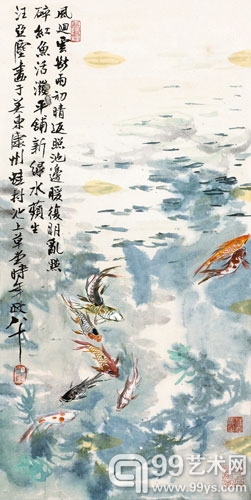 風迴雲斷雨初晴返照池邊暖復明亂點
碎紅魚活潑平鋪新綠水蘋生
汪亞塵畫于美東康州村池上草堂時年政八十
99艺术网
www.99ys.com